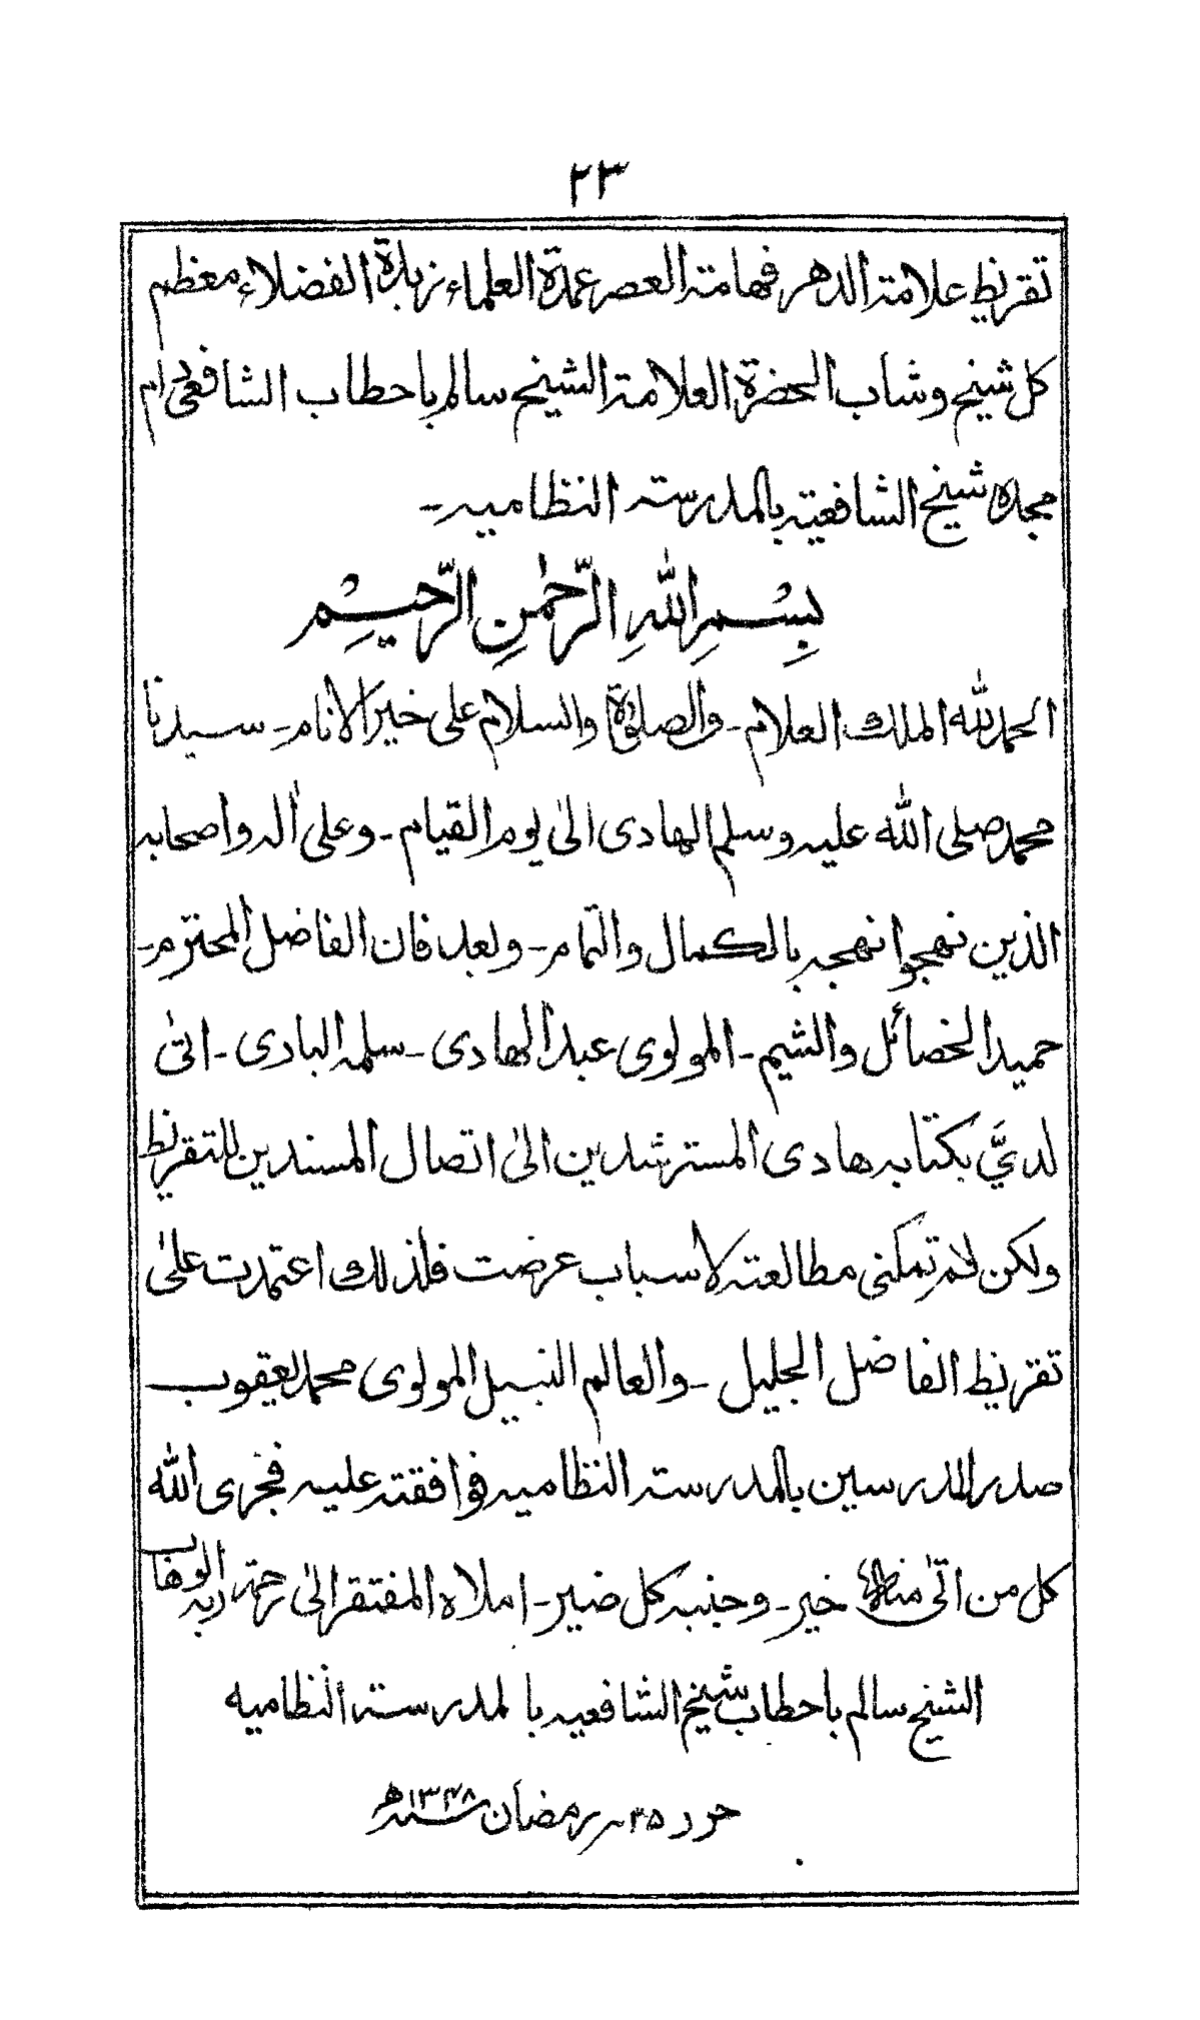 ٢٣
تقريظ علامة الدهر فهامة العصر عمدة العلماء زبدة الفضلاء معظم
كل شيخ وشاب الحضرة العلامة الشيخ سالم باحطاب الشافعي دام
مجده شيخ الشافعية بالمدرسته النظاميه۔
بِسْمِ اللهِ الرَّحْمٰنِ الرَّحِيْمِ
الحمد لله الملك العلام۔ والصلوٰة والسلام على خير الانام۔ سيدنا
محمد صلى الله عليه وسلم الهادى الىٰ يوم القيام۔ وعلى أله واصحابه
الذين نهجوا نهجه بالكمال والتمام۔ وبعد فان الفاضل المحترم۔
حميد الخصائل والشيم۔ المولوى عبد الهادى۔ سلمه البادى۔ اتىٰ
لديَّ بكتابه هادى المسترشدين الىٰ اتصال المسندين للتقريظ
ولكن لم تمكنى مطالعته لاسباب عرضت فلذلك اعتمدت علىٰ
تقريظ الفاضل الجليل۔ والعالم النبيل المولوى محمد يعقوب
صدر المدرسين بالمدرسته النظاميه فوافقته عليه فجزى الله
كل من اتىٰ منا خير۔ وجنبه كل ضير۔ املاه المفتقر الىٰ رحمة ربه الوهاب
الشيخ سالم باحطاب شيخ الشافعيه بالمدرسته النظاميه
حرر ٢٥ رمضان سنه ١٣٣٨ھ